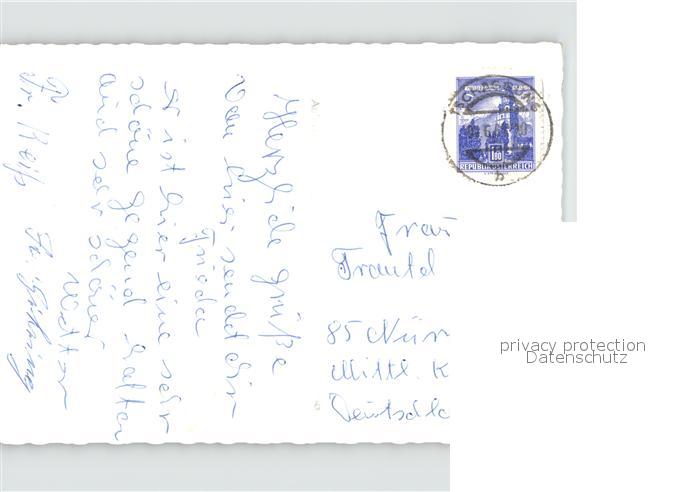 Herzliche Grüße
von hier sendet dir
Frieda
Es ist hier eine sehr
schöne Gegend haben
auch sehr schönes
Wetter
Fr. Reiß
Frau
Trautl
85 Nürn
Mittl. K
Deutschla
1.80
REPUBLIK ÖSTERREICH
privacy protection
Datenschutz